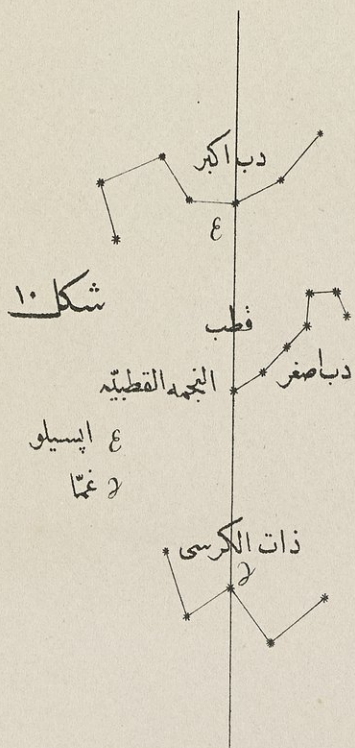 دب اکبر
ε
شكل ١٠
قطب
دب اصغر
النجمه القطبیّه
ε اپسیلو
γ غمّا
ذات الكرسى
γ